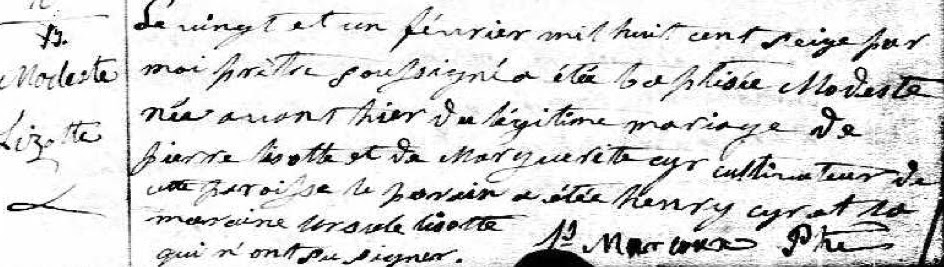 B.
Modeste
Lizotte
Le vingt et un février mil huit cent seize par
moi prêtre soussigné a étée baptisée Modeste
née avant hier du légitime mariage de
pierre lisotte et de Marguerite cyr cultivateur de
cette paroisse le parain a étée henry cyr et la
maraine ursule lisotte
qui n'ont su signer. Marcoux Ptre